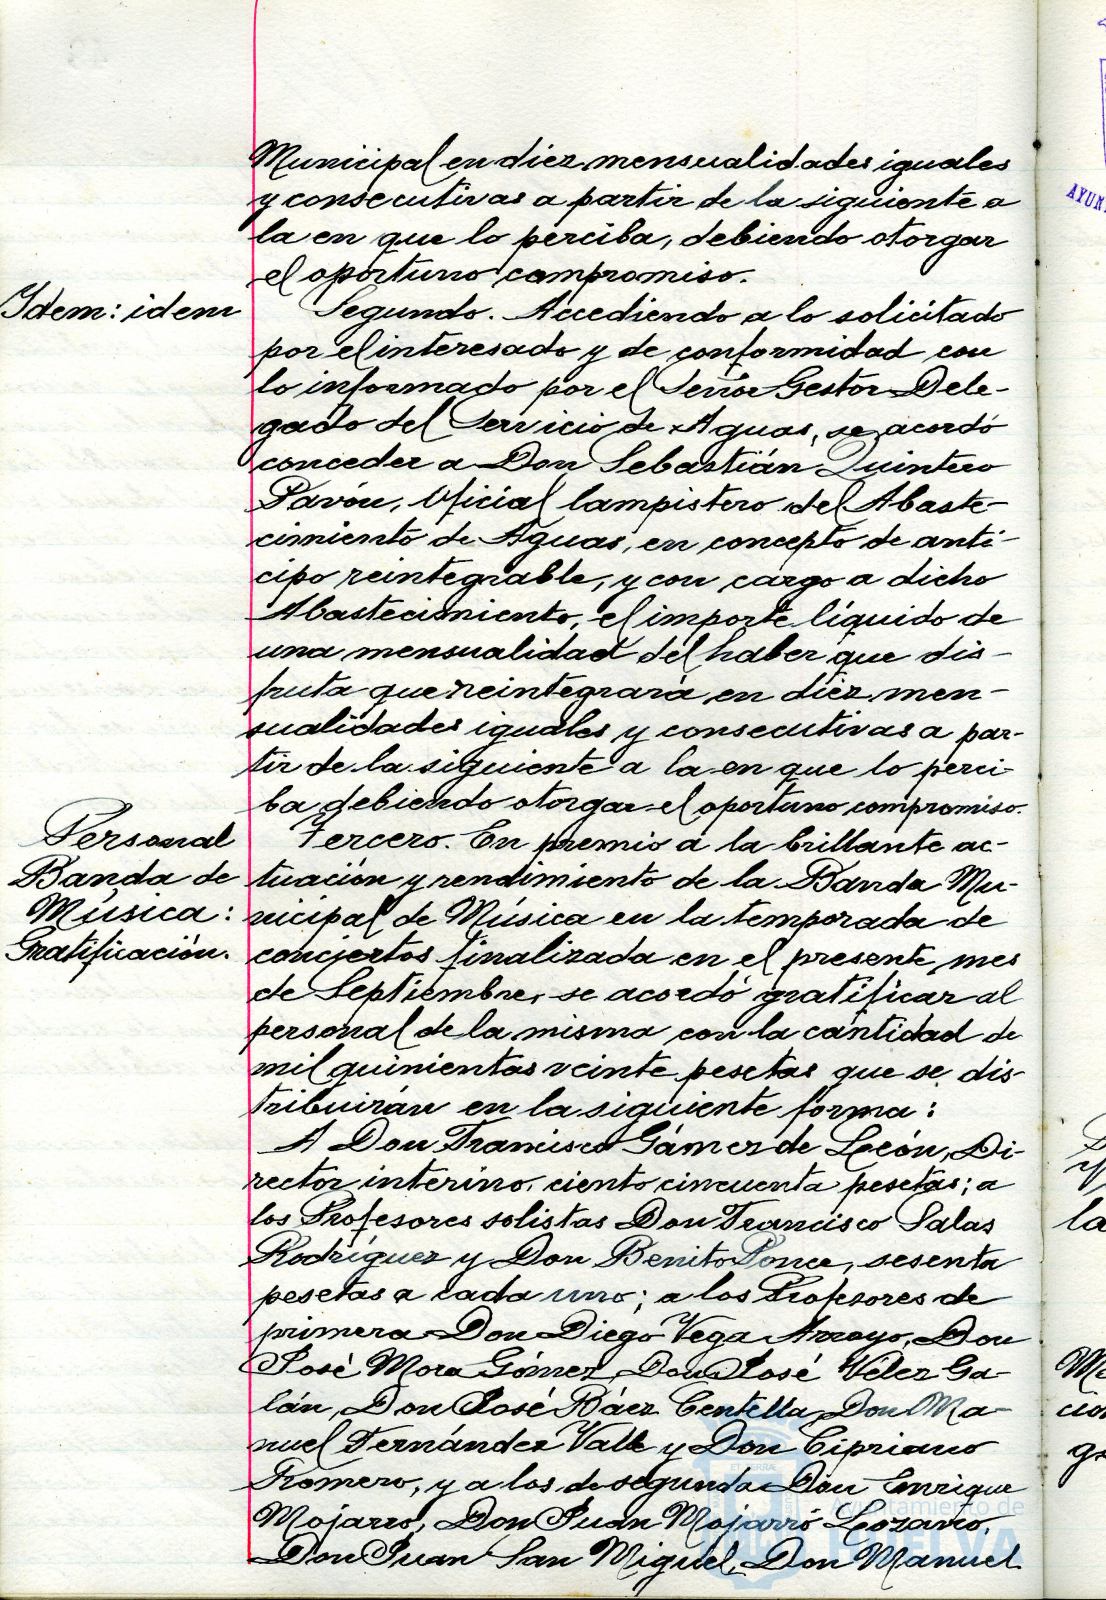 Municipal en diez mensualidades iguales
y consecutivas a partir de la siguiente a
la en que lo perciba, debiendo otorgar
el oportuno compromiso.
Idem: idem
Segundo. Accediendo a lo solicitado
por el interesado y de conformidad con
lo informado por el Señor Gestor Dele-
gado del Servicio de Aguas, se acordó
conceder a Don Sebastián Quintero
Pavón, Oficial lampistero del Abaste-
cimiento de Aguas, en concepto de anti-
cipo reintegrable, y con cargo a dicho
Abastecimiento, el importe líquido de
una mensualidad del haber que dis-
fruta que reintegrará en diez men-
sualidades iguales y consecutivas a par-
tir de la siguiente a la en que lo perci-
ba debiendo otorgar el oportuno compromiso.
Personal
Banda de
Música:
Gratificación.
Tercero. En premio a la brillante ac-
tuación y rendimiento de la Banda Mu-
nicipal de Música en la temporada de
conciertos finalizada en el presente mes
de Septiembre, se acordó gratificar al
personal de la misma con la cantidad de
mil quinientas veinte pesetas que se dis-
tribuirán en la siguiente forma:
A Don Francisco Gámez de León, Di-
rector interino, ciento cincuenta pesetas; a
los Profesores solistas Don Francisco Salas
Rodríguez y Don Benito Ponce, sesenta
pesetas a cada uno; a los Profesores de
primera Don Diego Vega Arroyo, Don
José Mora Gómez, Don José Vélez Ga-
lán, Don José Báez Centella, Don Ma-
nuel Fernández Valle y Don Cipriano
Romero, y a los de segunda Don Enrique
Mojarro, Don Juan Mojarro Lozano,
Don Juan San Miguel, Don Manuel
Ayuntamiento de
HUELVA
AYUN
la